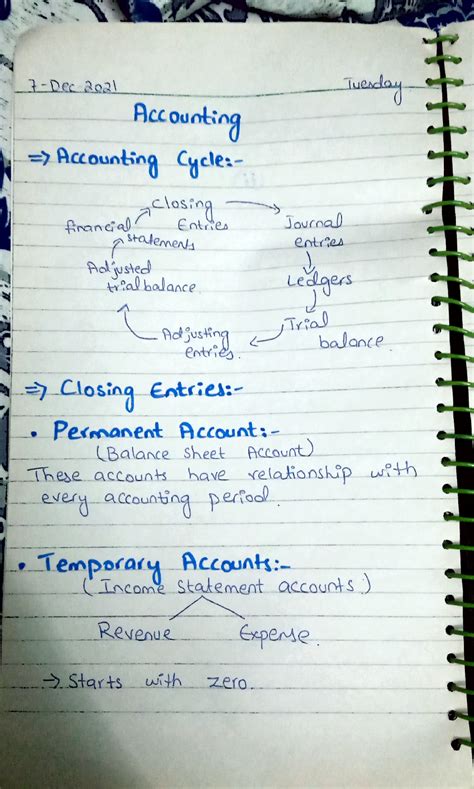 7-Dec 2021 Tuesday
Accounting
⇒ Accounting Cycle:-
Closing Entries
Journal entries
Ledgers
Trial balance
Adjusting entries.
Adjusted trial balance
financial statements
⇒ Closing Entries:-
• Permanent Account:-
(Balance Sheet Account)
These accounts have relationship with
every accounting period.
• Temporary Accounts:-
(Income Statement accounts.)
Revenue Expense.
→ Starts with zero.